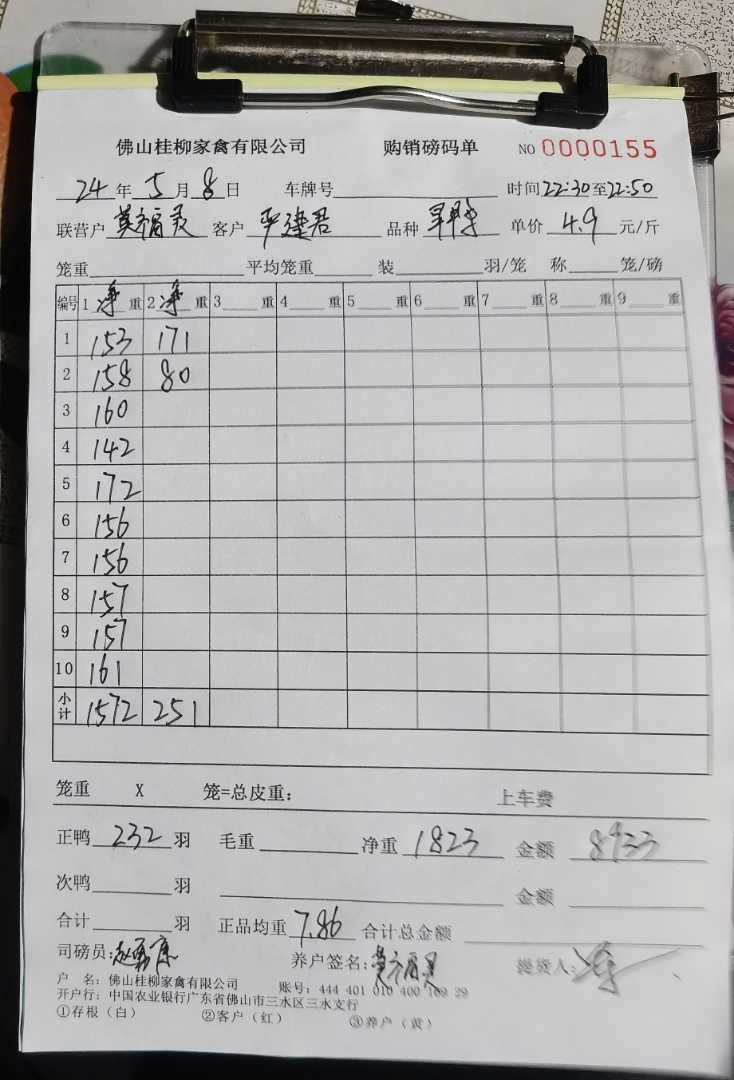 佛山桂柳家禽有限公司 购销磅码单 NO 0000155
24年5月8日 车牌号 时间22:30至22:50
联营户 莫福灵 客户 严建君 品种 单价 4.9 元/斤
笼重 平均笼重 装 羽/笼 称 笼/磅
编号 1 净 重 2 净 重 3 重 4 重 5 重 6 重 7 重 8 重 9 重
1 153 171
2 158 80
3 160
4 142
5 172
6 156
7 156
8 157
9 157
10 161
小计 1572 251
笼重 X 笼=总皮重: 上车费
正鸭 232 羽 毛重 净重 1823 金额 8933
次鸭 羽 金额
合计 羽 正品均重 7.86 合计总金额
司磅员: 养户签名: 莫福灵 提货人:
户 名: 佛山桂柳家禽有限公司 账号: 444 401 010 400 109 29
开户行: 中国农业银行广东省佛山市三水区三水支行
①存根(白) ②客户(红) ③养户(黄)